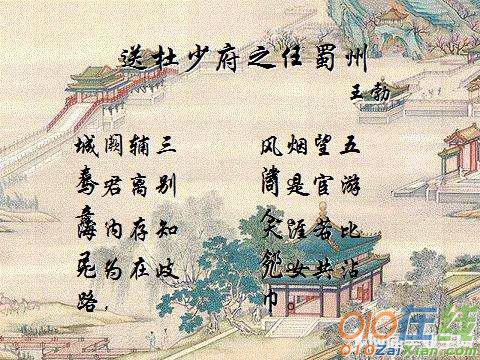 送杜少府之任蜀州
王勃
城阙辅三
君离别
海内存知
为在歧
路，
风烟望五
是宦游
天涯若比
女共沾
巾。
010在线
010ZaiXian.com